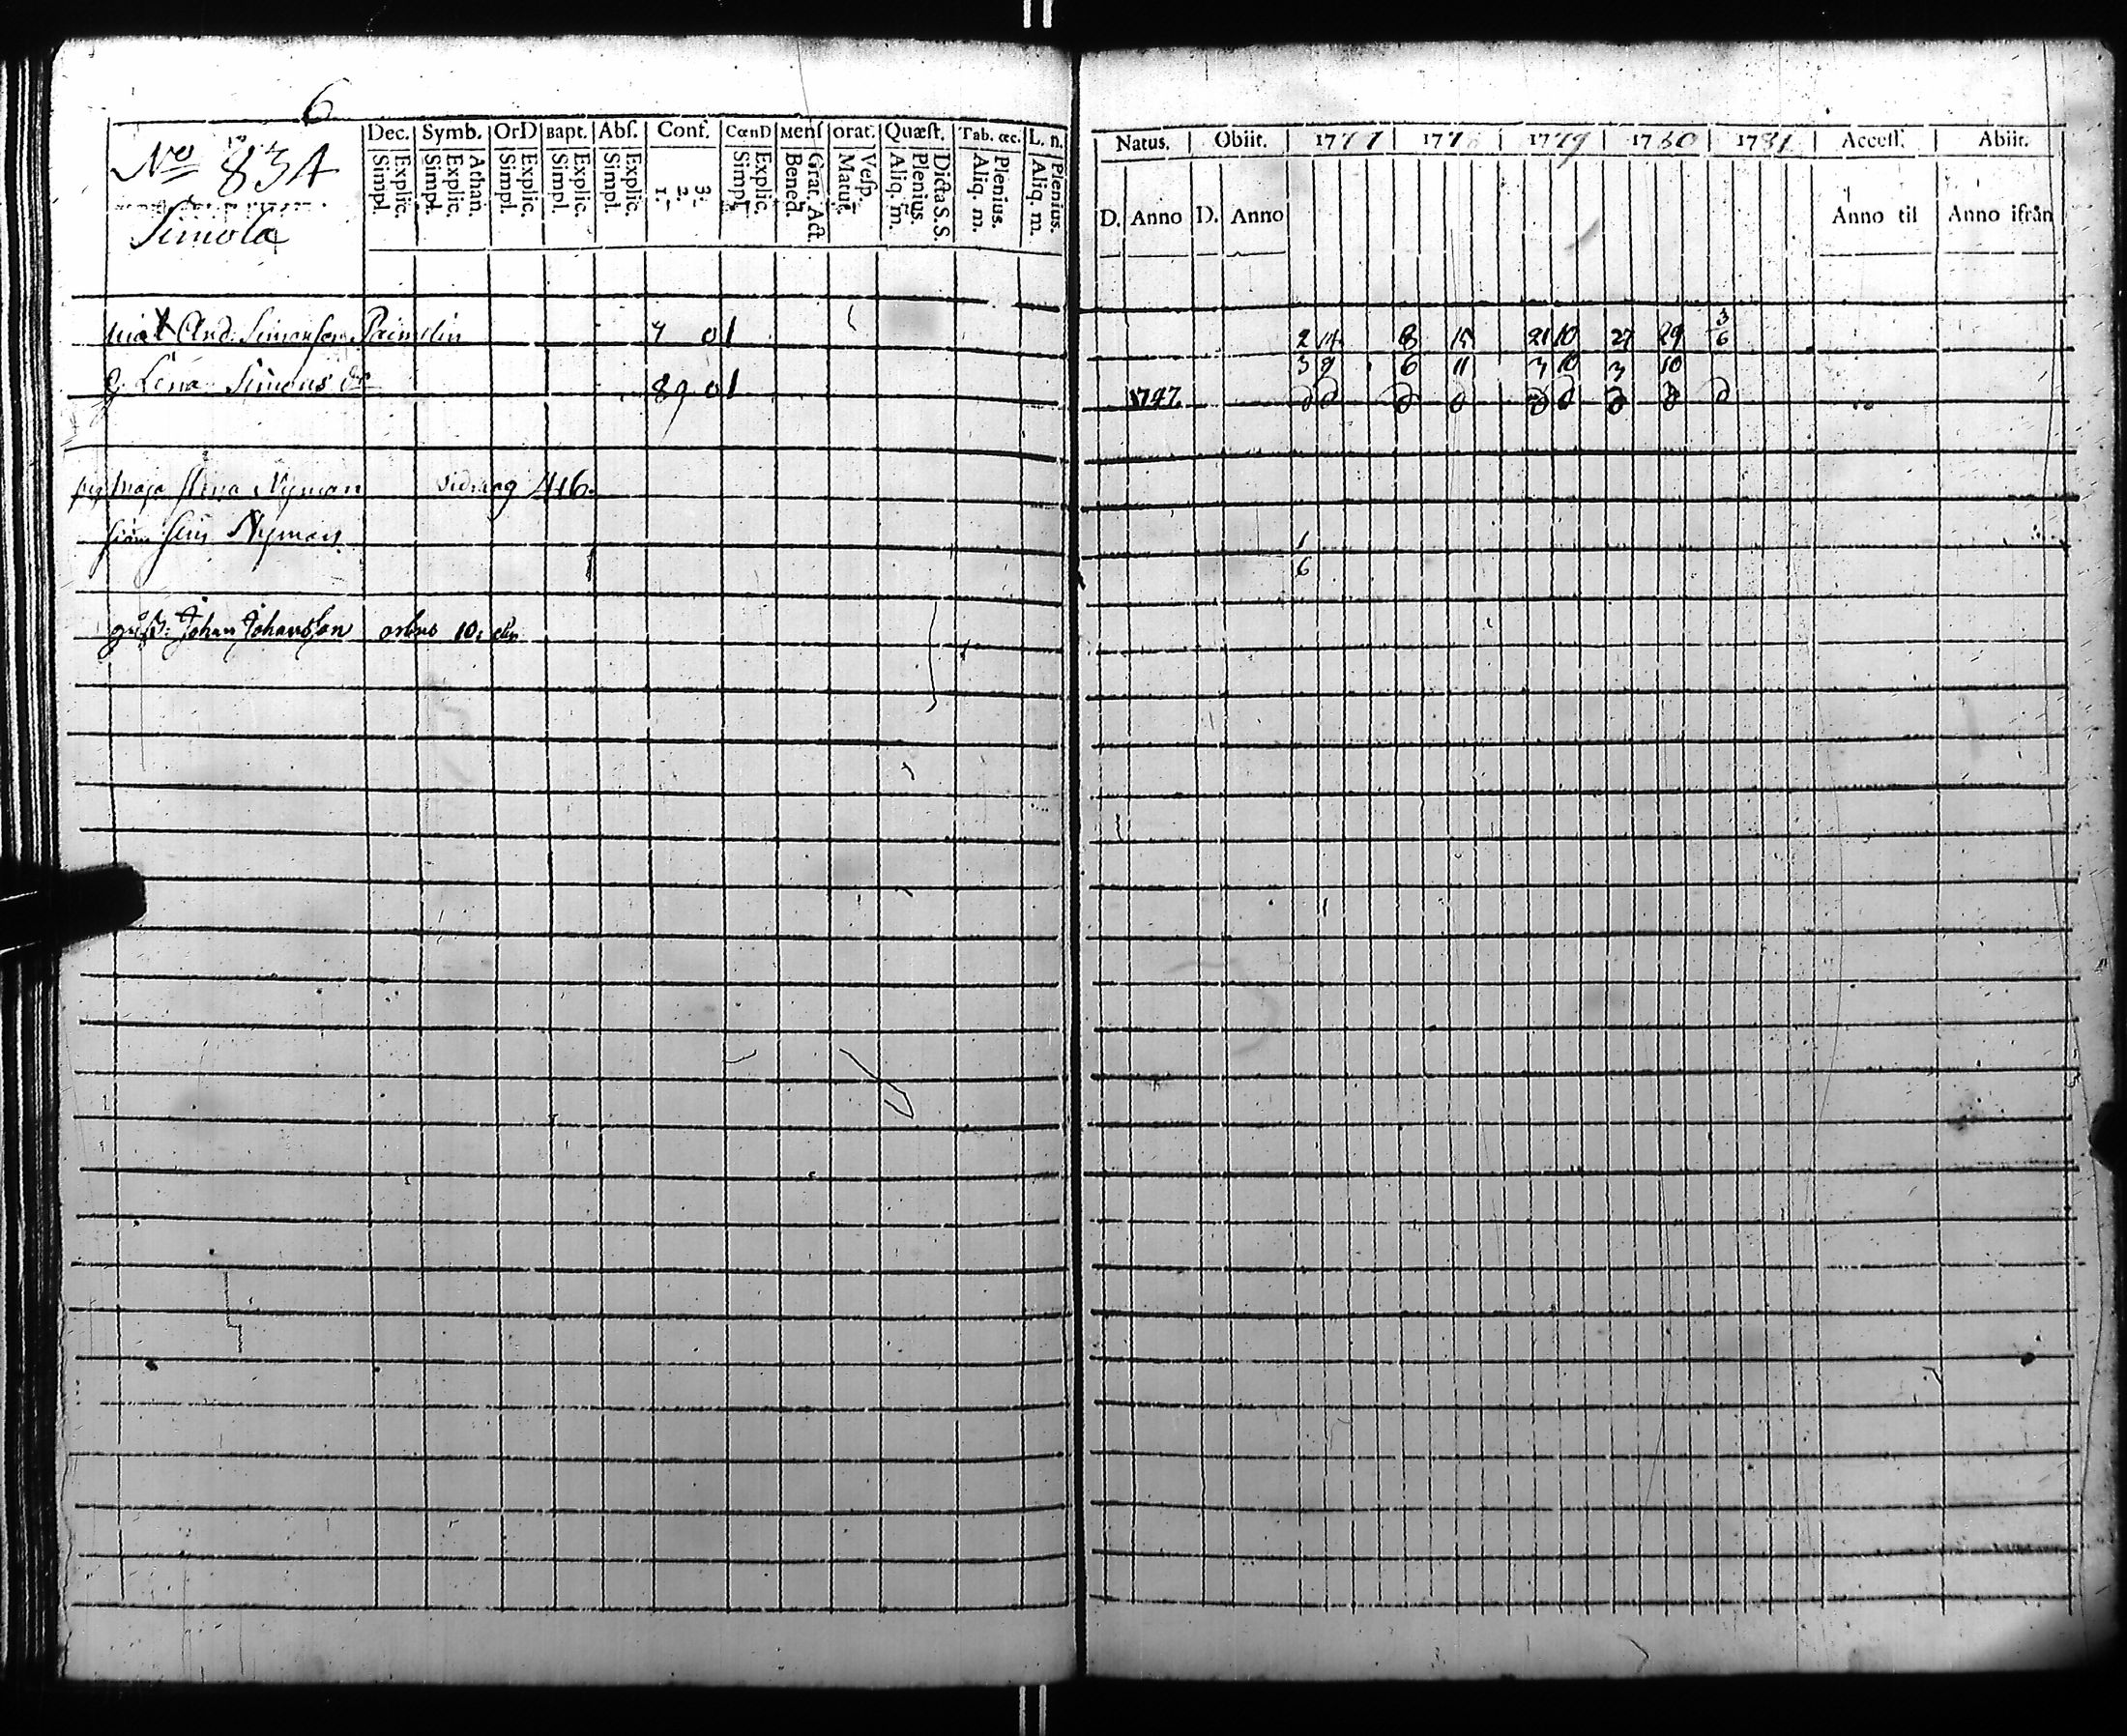 6
No 83A
Simola
Dec. Symb. OrD Bapt. Abſ. Conf. CœnD Menſ orat. Quæſt. Tab. œc. L. n.
Explic. Simpl. Athan. Explic. Simpl. Explic. Simpl. Explic. Simpl. Explic. Simpl. 3. 2. 1. Explic. Simpl. Grat. Act. Bened. Veſp. Matut. Dicta S. S. Plenius. Aliq. m. Plenius. Aliq. m. Plenius. Aliq. m.
Natus. Obiit. 1777 1778 1779 1780 1781 Acceſſ. Abiit.
D. Anno D. Anno Anno til Anno ifrån
And. Simonson 7 01 2 14 8 15 21 10 27 29 3
6
3 9 6 11 3 10 3 10
Lena Simons dr 89 01 1747
Maja Nyman 416.
Nyman 1
6
Johan Johansson 10